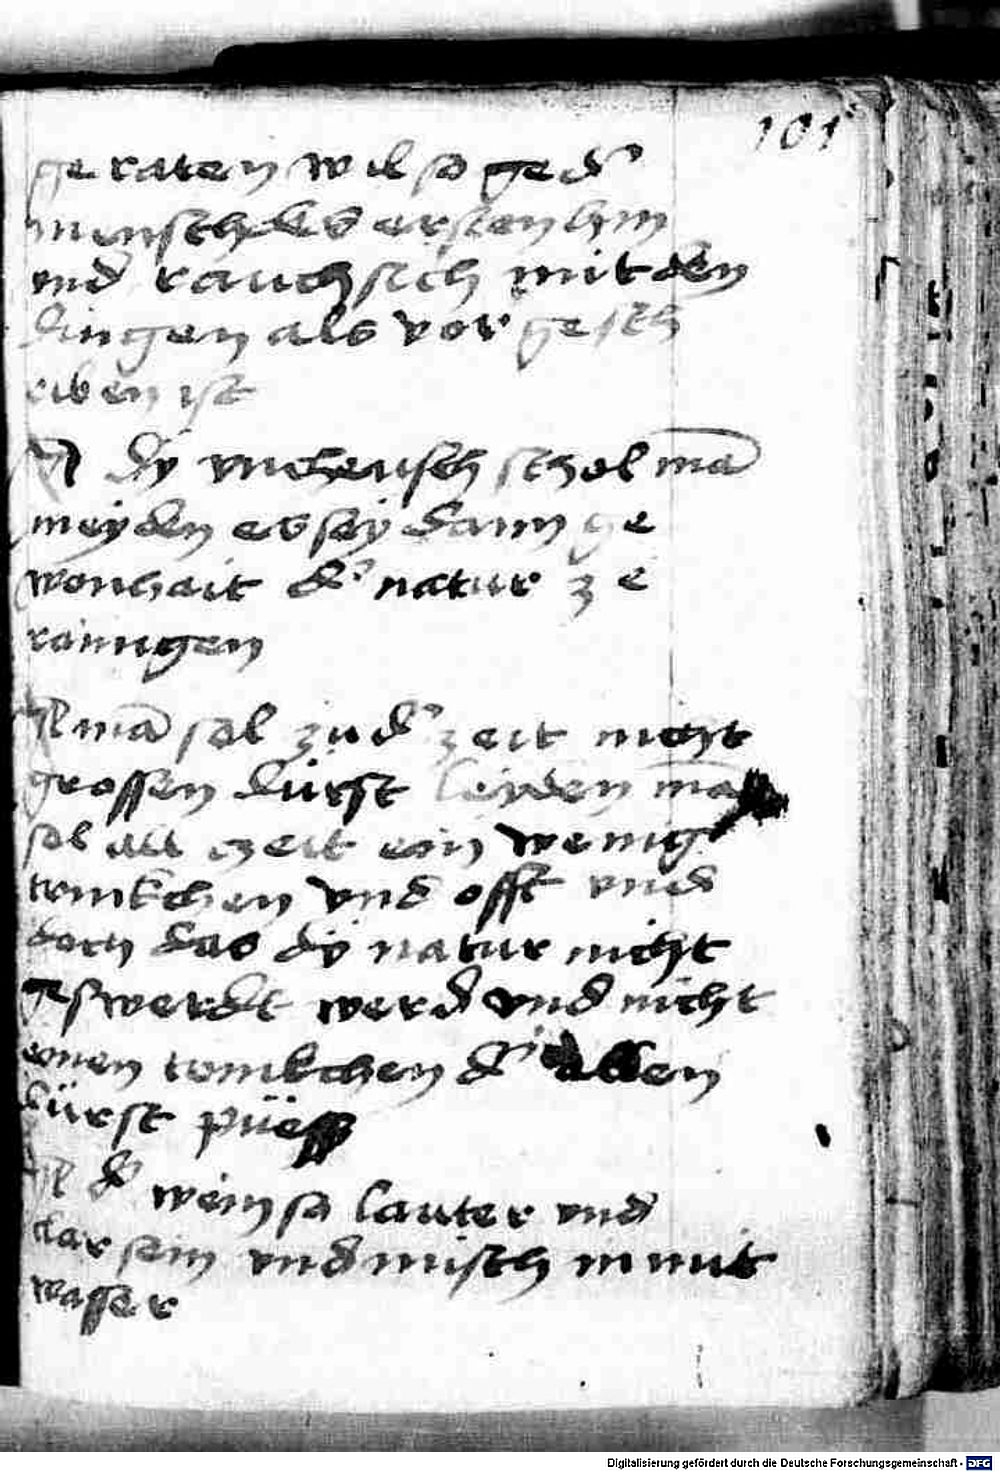 101
geraten wil so ge d'
mensch des ersten hin
vnd rauch sich mit den
dingen als vor gesch
riben ist
dy vncheusch schol mā
meyden es sey dann ge
wonhait d' natur ze
rainigen
mā sol zu d' zeit nicht
grossen dürst leyden mā
sol all zeit ein wenig
trinkchen vnd offt vnd
doch das dy natur nicht
geswerdt werd vnd nicht
einen trinkchen d'
dürst püess
d' wein so lauter vnd
klar sein vnd misch in mit
wasser
Digitalisierung gefördert durch die Deutsche Forschungsgemeinschaft - DFG